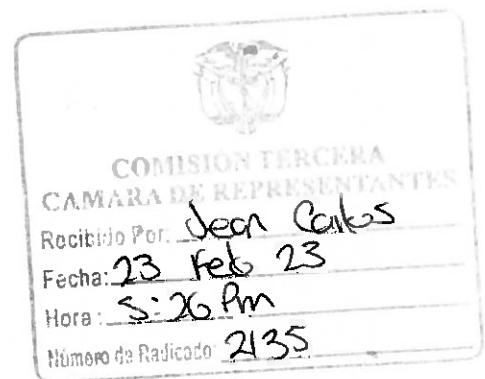 COMISIÓN TERCERA
CAMARA DE REPRESENTANTES
Recibido Por: Jean Carlos
Fecha: 23 Feb 23
Hora: 5:26 Pm
Número de Radicado: 2135